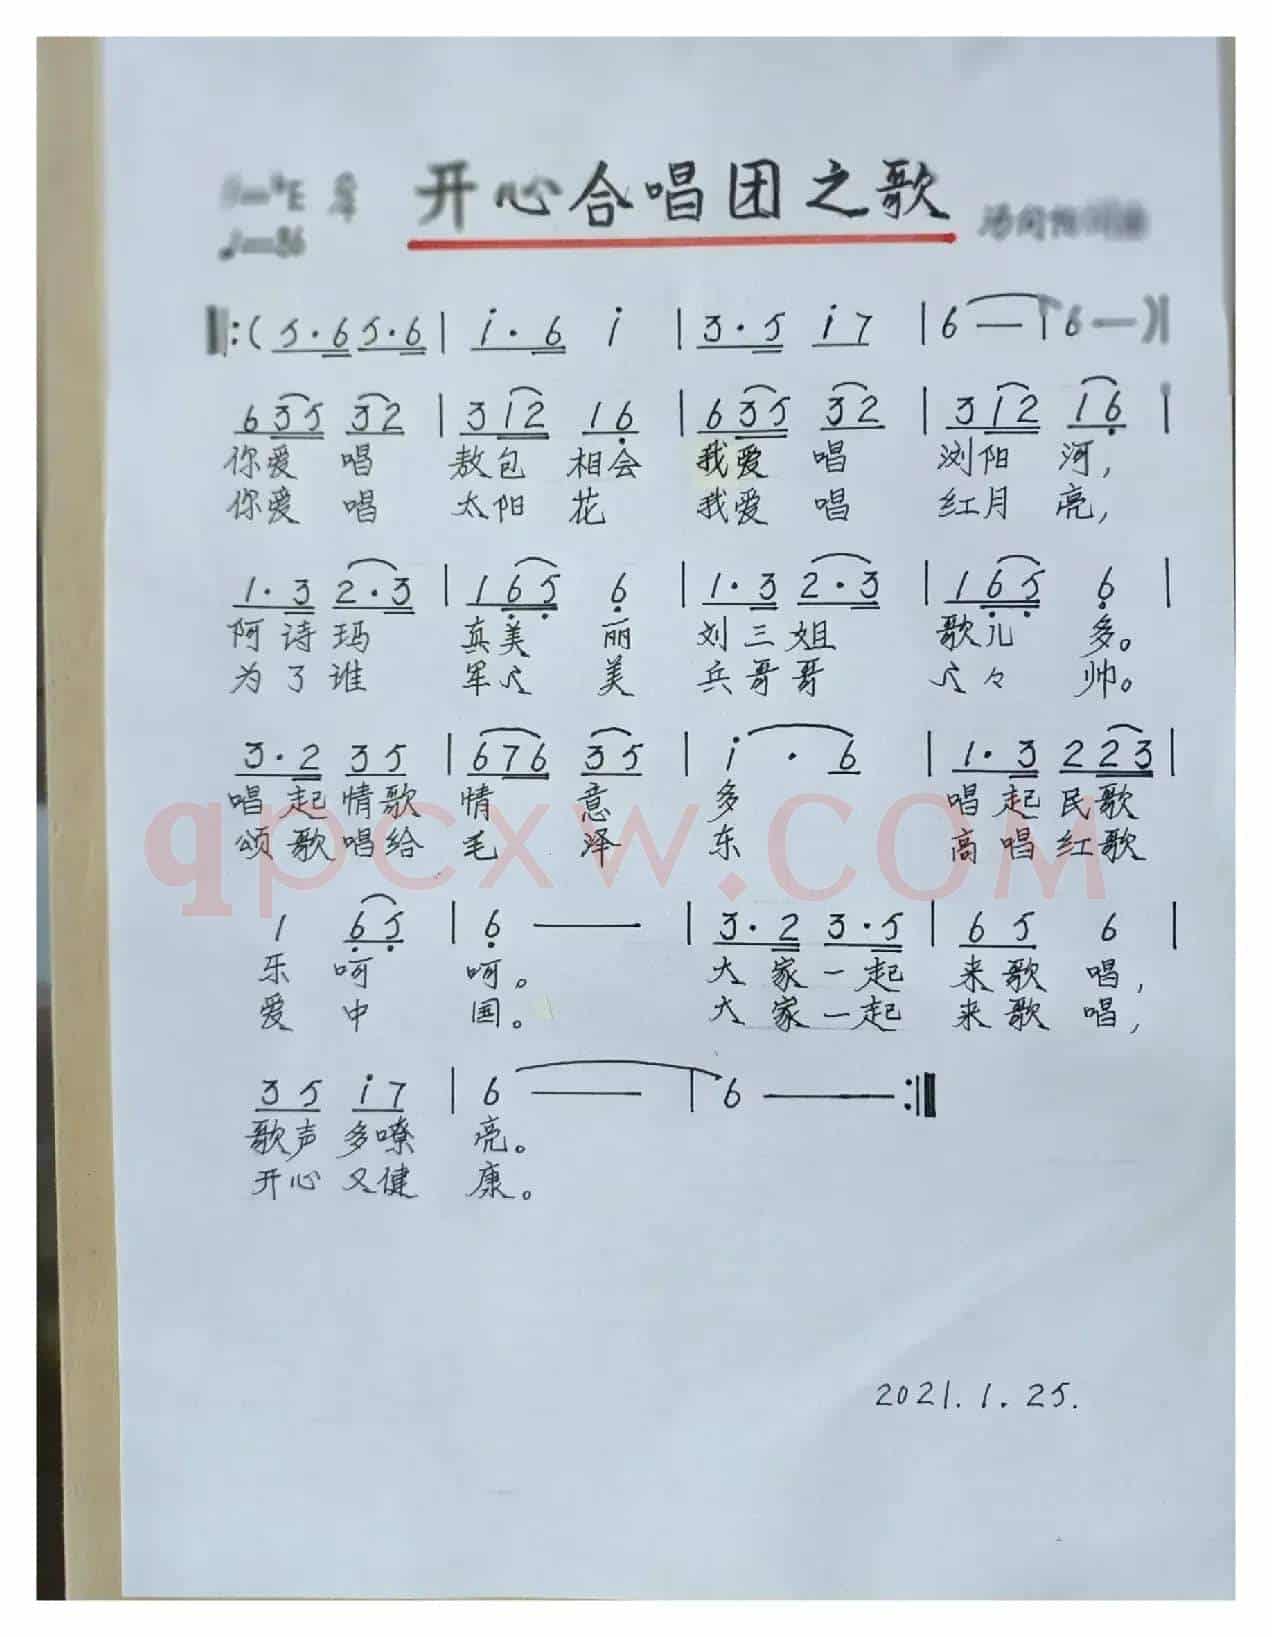 ♭E 2/4 开心合唱团之歌
♩=86
‖:(5·6 5·6 | i·6 i | 3·5 i7 | 6 — | 6 — )|
6 35 32 | 3 12 16 | 6 35 32 | 3 12 16 |
你爱 唱 敖包 相会 我爱 唱 浏阳 河,
你爱 唱 太阳 花 我爱 唱 红月 亮,
1·3 2·3 | 1 65 6 | 1·3 2·3 | 1 65 6 |
阿诗玛 真美 丽 刘三姐 歌儿 多。
为了谁 军 美 兵哥哥 々 帅。
3·2 35 | 676 35 | i · 6 | 1·3 223 |
唱起情歌 情 意 多 唱起民歌
颂歌唱给 毛 泽 东 高唱红歌
1 65 | 6 — | 3·2 3·5 | 65 6 |
乐 呵 呵。 大家一起 来歌 唱,
爱 中 国。 大家一起 来歌 唱,
35 i7 | 6 — | 6 — :‖
歌声 多嘹 亮。
开心 又健 康。
2021.1.25.
qpcxw.COM